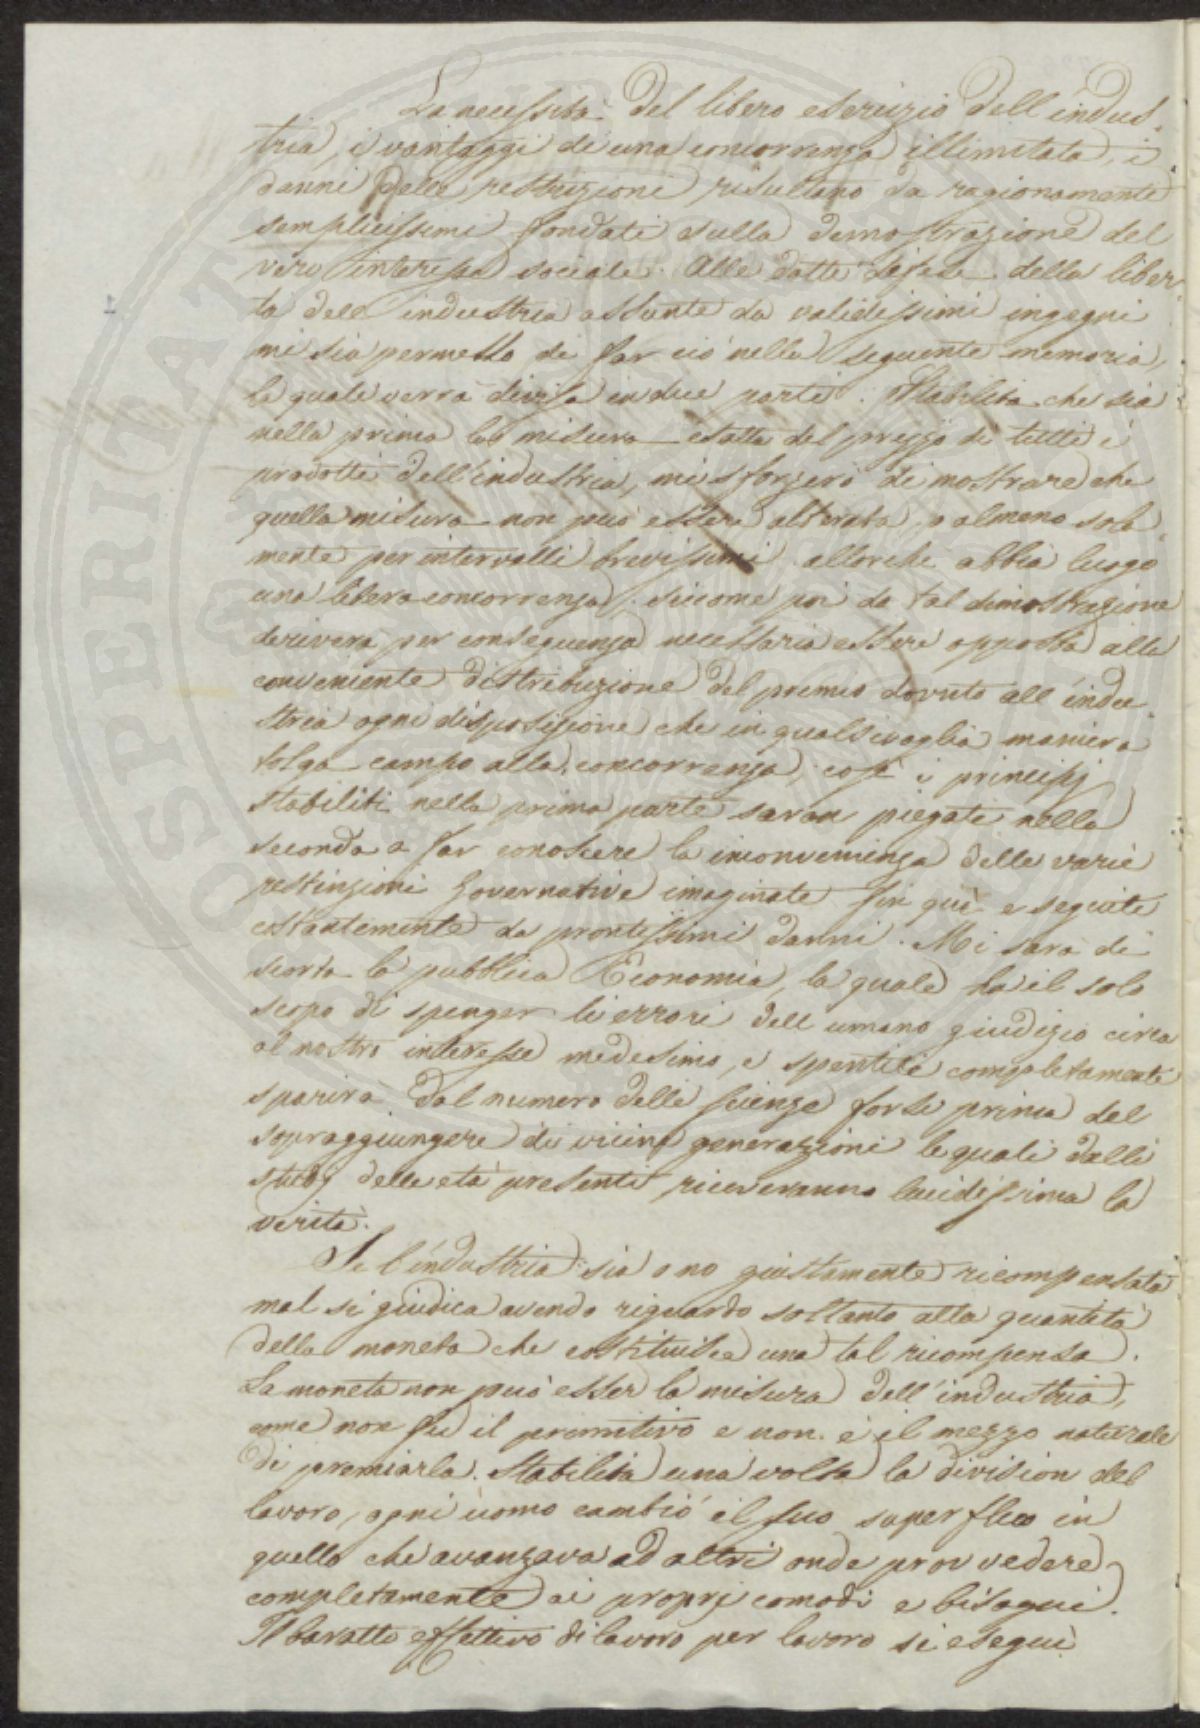 La necessità del libero esercizio dell'indus-
tria, i vantaggi di una concorrenza illimitata, i
danni delle restrizioni risultano da ragionamenti
semplicissimi fondati sulla dimostrazione del
vero interesse sociale. Alle dotte difese della liber-
tà dell'industria assunte da validissimi ingegni
mi sia permesso di far ciò nella seguente memoria,
la quale verrà divisa in due parti. Stabilita che sia
nella prima la misura esatta del prezzo di tutti i
prodotti dell'industria, mi sforzerò di mostrare che
quella misura non può essere alterata, o almeno sola-
mente per intervalli brevissimi allorché abbia luogo
una libera concorrenza. Siccome poi da tal dimostrazione
deriverà per conseguenza necessaria essere opposta alla
conveniente distribuzione del premio dovuto all'indu-
stria ogni disposizione che in qualsivoglia maniera
tolga campo alla concorrenza, così i principj
stabiliti nella prima parte saran piegati nella
seconda a far conoscere la inconvenienza delle varie
restrizioni Governative imaginate fin quì e seguite
costantemente da prontissimi danni. Mi sarà di
scorta la pubblica Economia, la quale ha il solo
scopo di spenger li errori dell'umano giudizio circa
al nostro interesse medesimo, e spentili completamente
sparirà dal numero delle scienze forse prima del
sopraggiungere di vicine generazioni le quali dalli
studj delle età presenti riceveranno lucidissima la
verità.
Se l'industria sia o no giustamente ricompensata
mal si giudica avendo riguardo soltanto alla quantità
della moneta che costituisce una tal ricompensa.
La moneta non può esser la misura dell'industria,
come non fu il primitivo e non è il mezzo naturale
di premiarla. Stabilita una volta la division del
lavoro, ogni uomo cambiò il suo superfluo in
quello che avanzava ad altri onde provvedere
completamente ai proprj comodi e bisogni.
Il baratto effettivo di lavoro per lavoro si eseguì